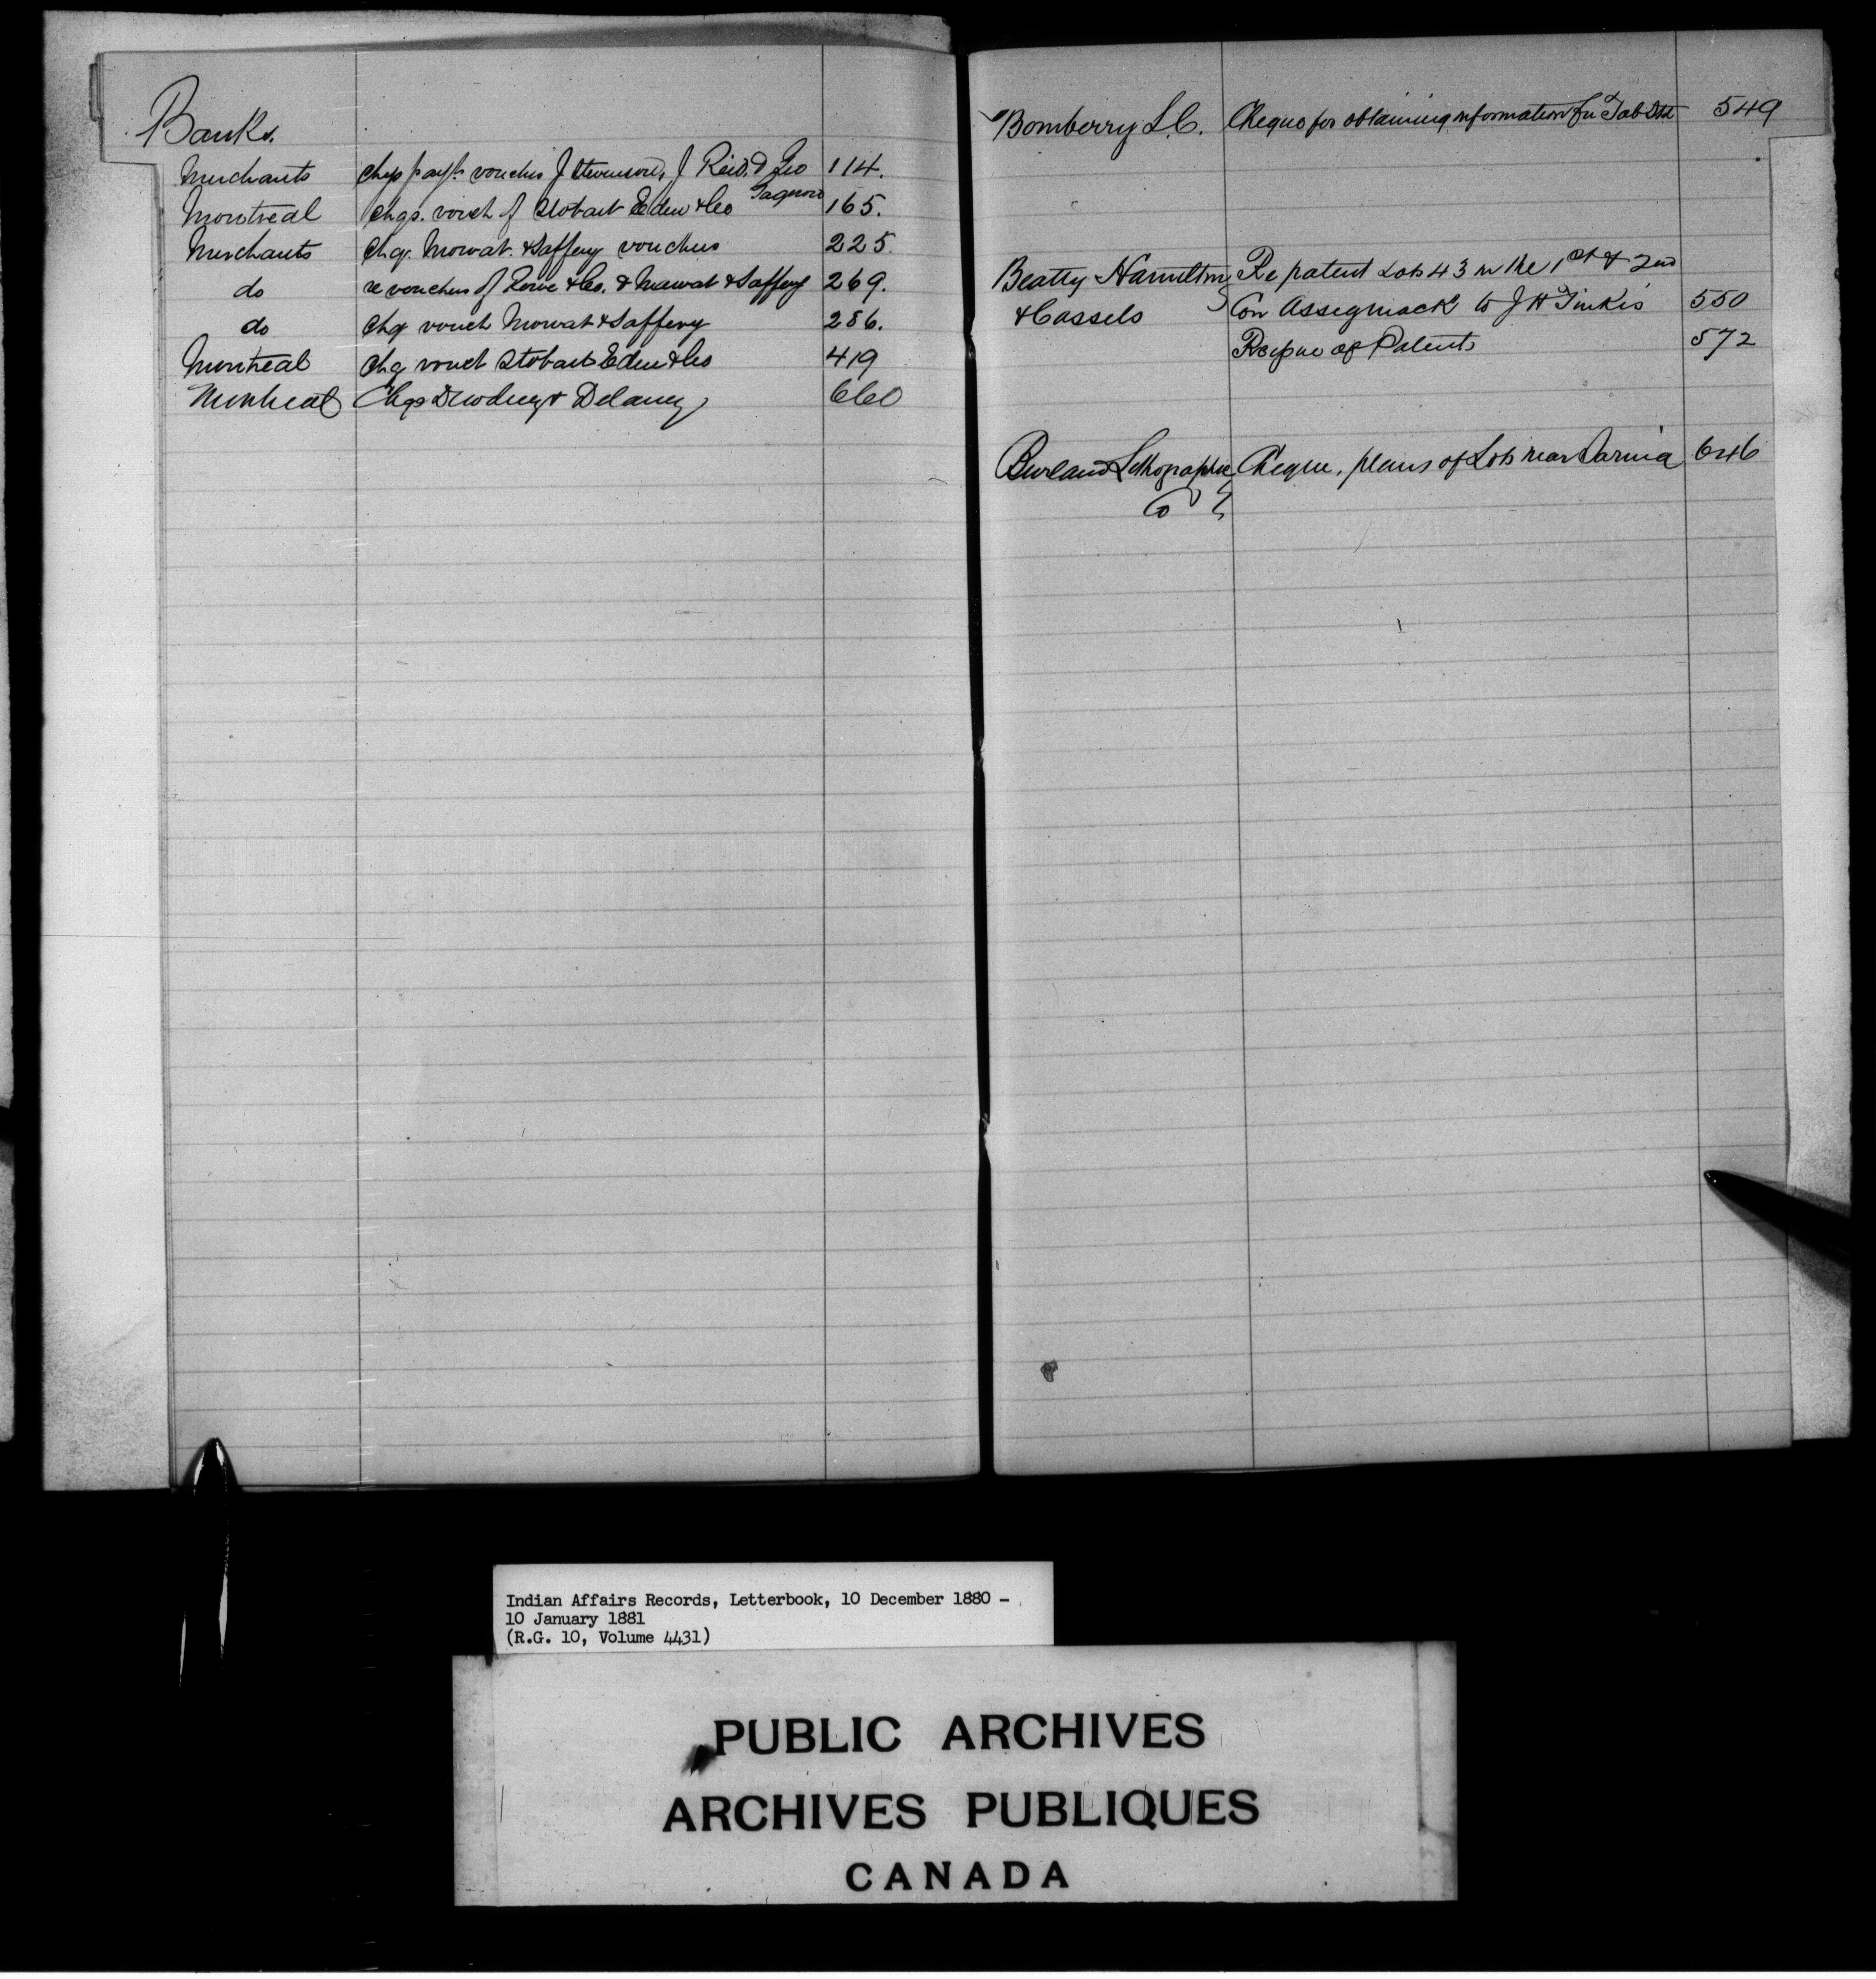 Banks.
Merchants chqs payt. vouches J Stevenson, J Reid, & Geo 114.
Montreal chqs. vouch of Stobart Eden & Co 165.
Merchants chq. Mowat & Saffery vouches 225.
do re vouches of Lowe & Co. & Mawat & Saffery 269.
do chq vouch Mowat & Saffery 286.
Montreal chq vouch Stobart Eden & Co 419
Montreal Chqs Dewdney & Delaney 660
Bomberry L.C. Cheque for obtaining information for Tab Stt 549
Beatty Hamilton Re patent Lots 43 in the 1st & 2nd
& Cassels Con Assiginack to J H 550
of Patents 572
Burland Lithographic Cheque, plans of Lots near Sarnia 646
Co
Indian Affairs Records, Letterbook, 10 December 1880 -
10 January 1881
(R.G. 10, Volume 4431)
PUBLIC ARCHIVES
ARCHIVES PUBLIQUES
CANADA